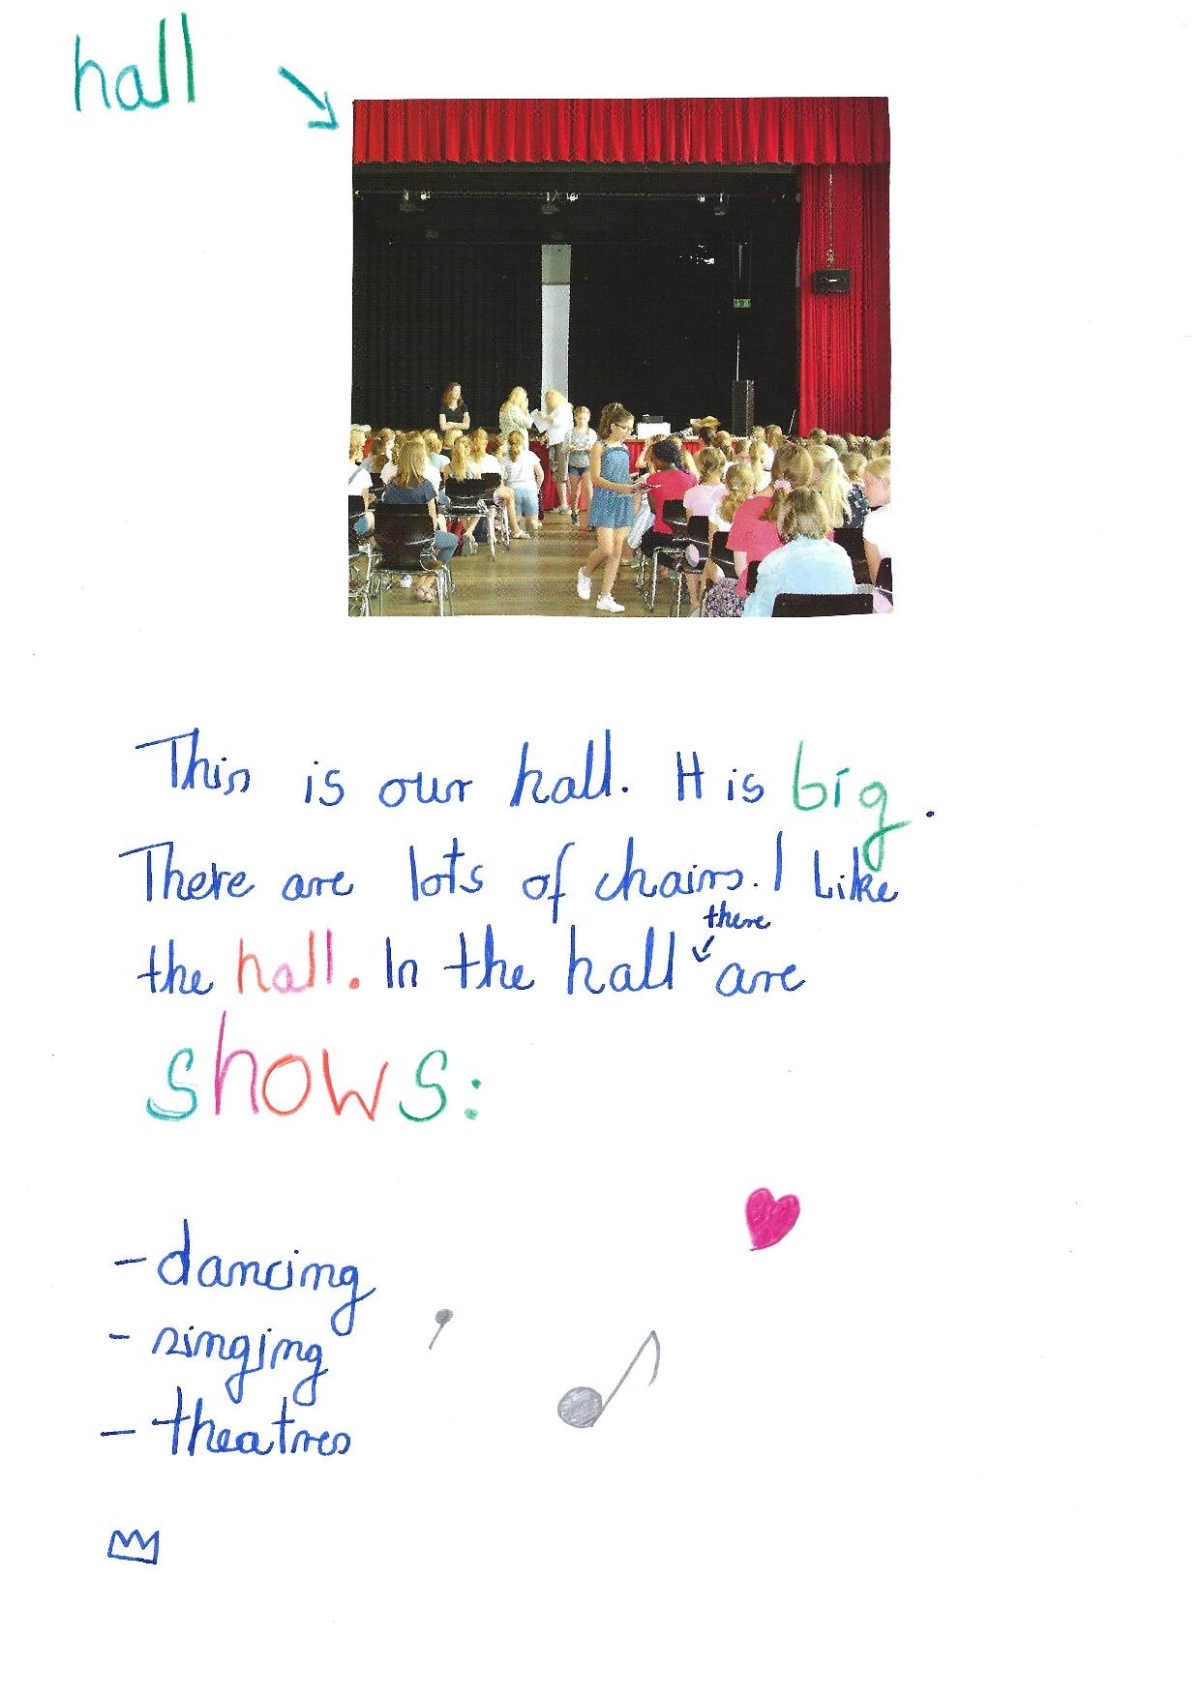 hall
This is our hall. It is big.
There are lots of chairs. I like
there
the hall. In the hall are
shows:
- dancing
- singing
- theatres